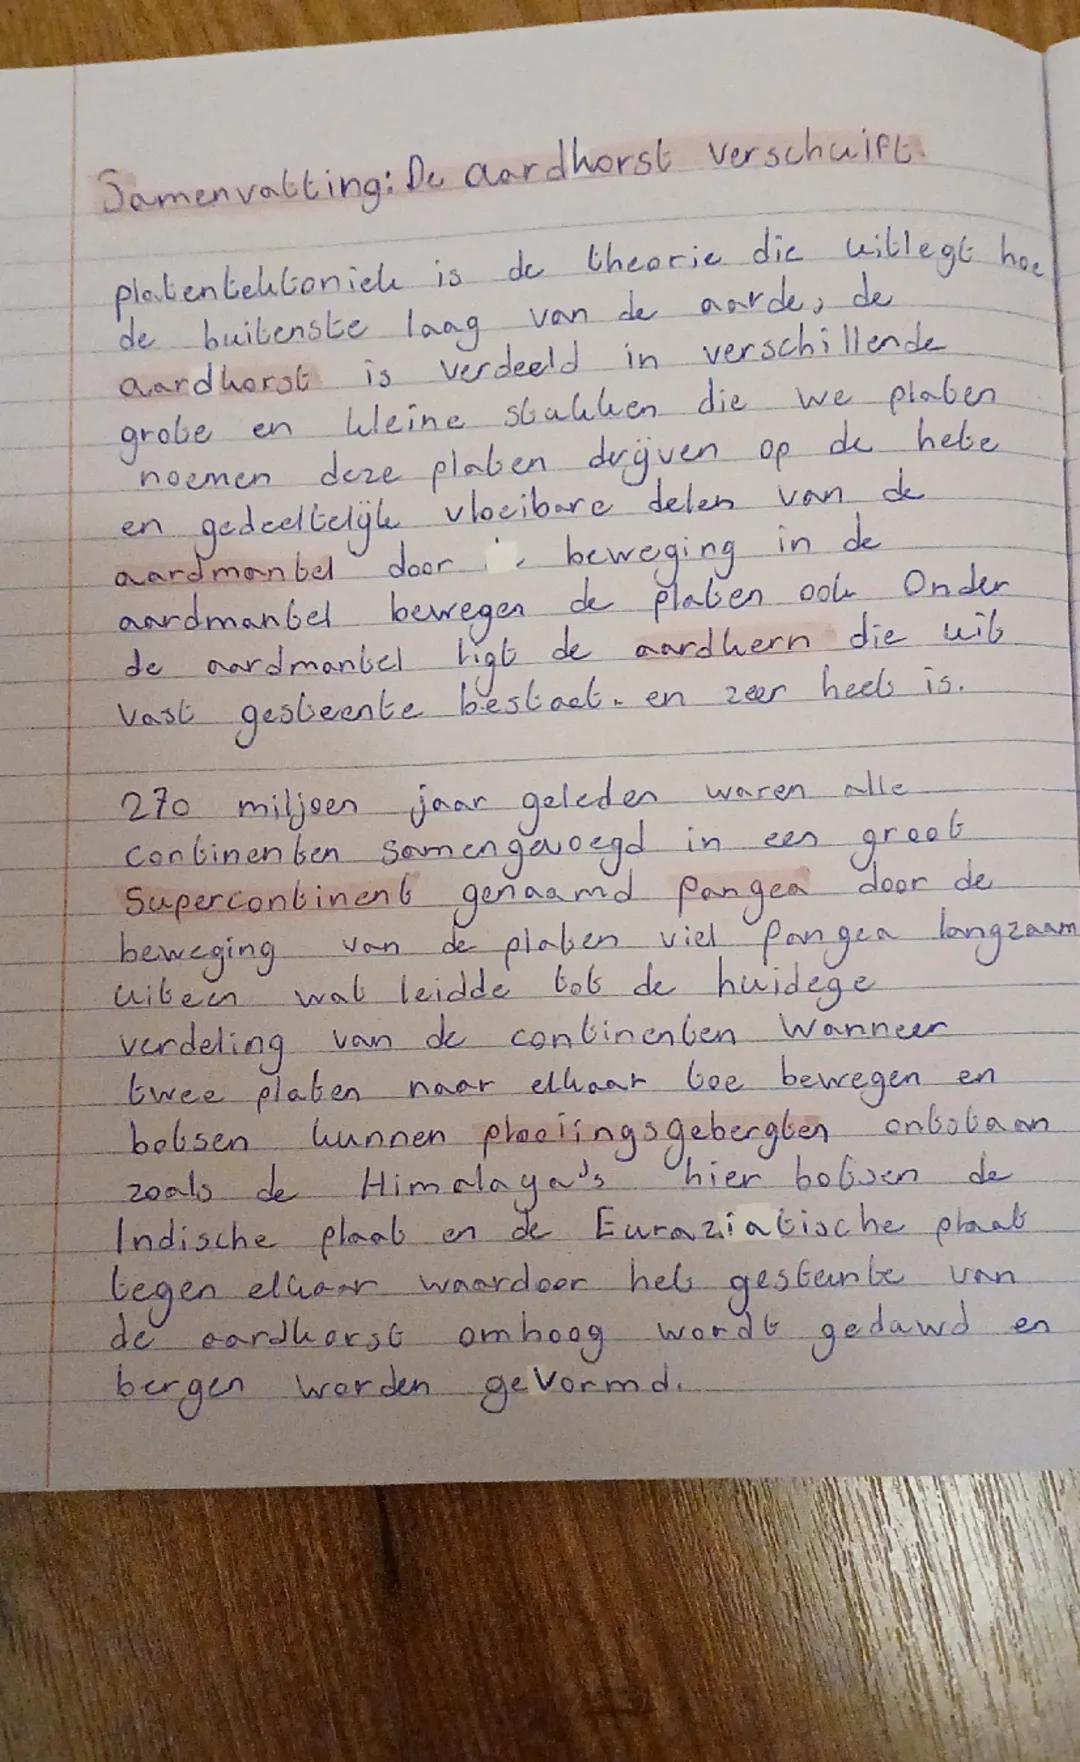 Samenvatting: De aardkorst verschuift.
platentektoniek is de theorie die uitlegt hoe
de buitenste laag van de aarde, de
aardkorst is verdeeld in verschillende
grote en kleine stukken die we platen
noemen deze platen drijven op de hete
en gedeeltelijk vloeibare delen van de
aardmantel door beweging in de
aardmantel bewegen de platen ook Onder
de aardmantel ligt de aardkern die uit
vast gesteente bestaat. en zeer heet is.
270 miljoen jaar geleden waren alle
continenten samengevoegd in een groot
Supercontinent genaamd Pangea door de
beweging van de platen viel Pangea langzaam
uiteen wat leidde tot de huidege
verdeling van de continenten Wanneer
twee platen naar elkaar toe bewegen en
botsen kunnen plooiingsgebergten ontstaan
zoals de Himalaya's hier botsen de
Indische plaat en de Euraziatische plaat
tegen elkaar waardoor het gesteente van
de aardkorst omhoog wordt geduwd en
bergen worden gevormd.